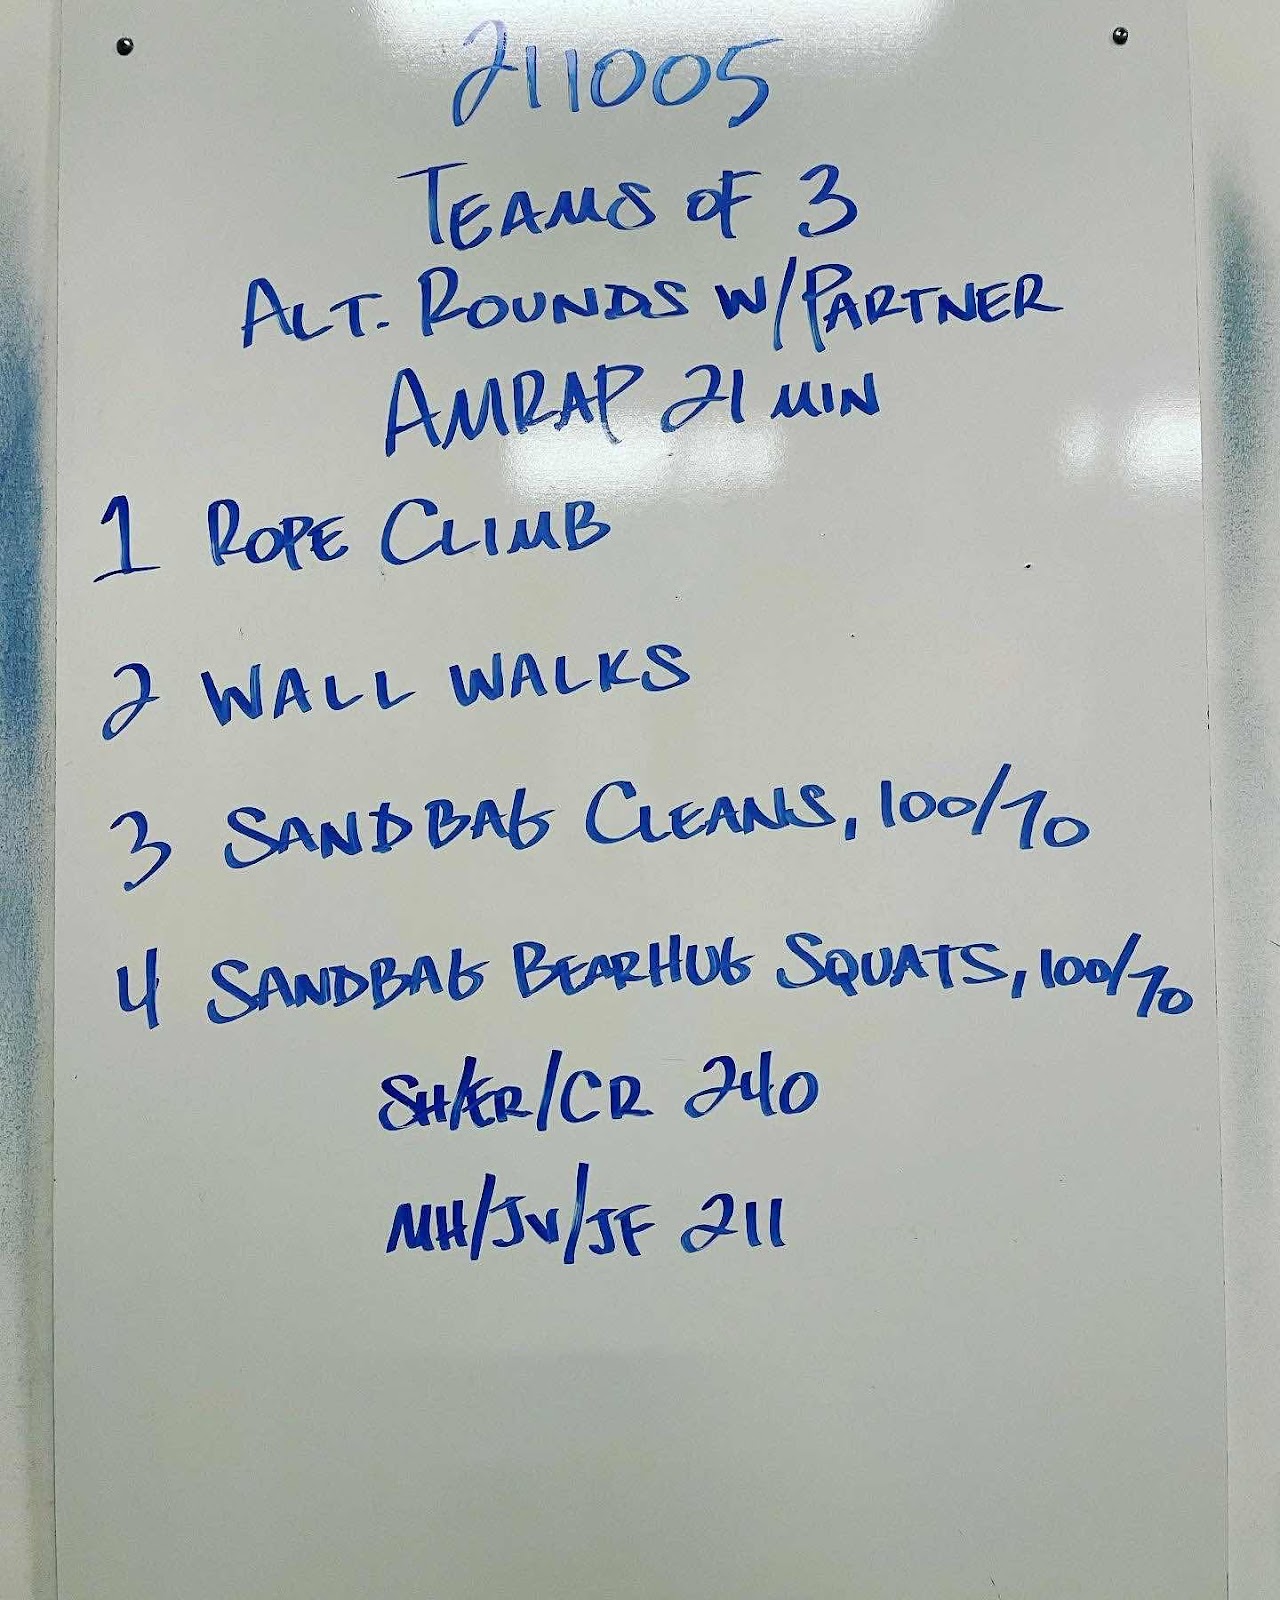 211005
TEAMS OF 3
ALT. ROUNDS W/PARTNER
AMRAP 21 MIN
1 ROPE CLIMB
2 WALL WALKS
3 SANDBAG CLEANS, 100/70
4 SANDBAG BEARHUG SQUATS, 100/70
SH/ER/CR 240
MH/JV/JF 211